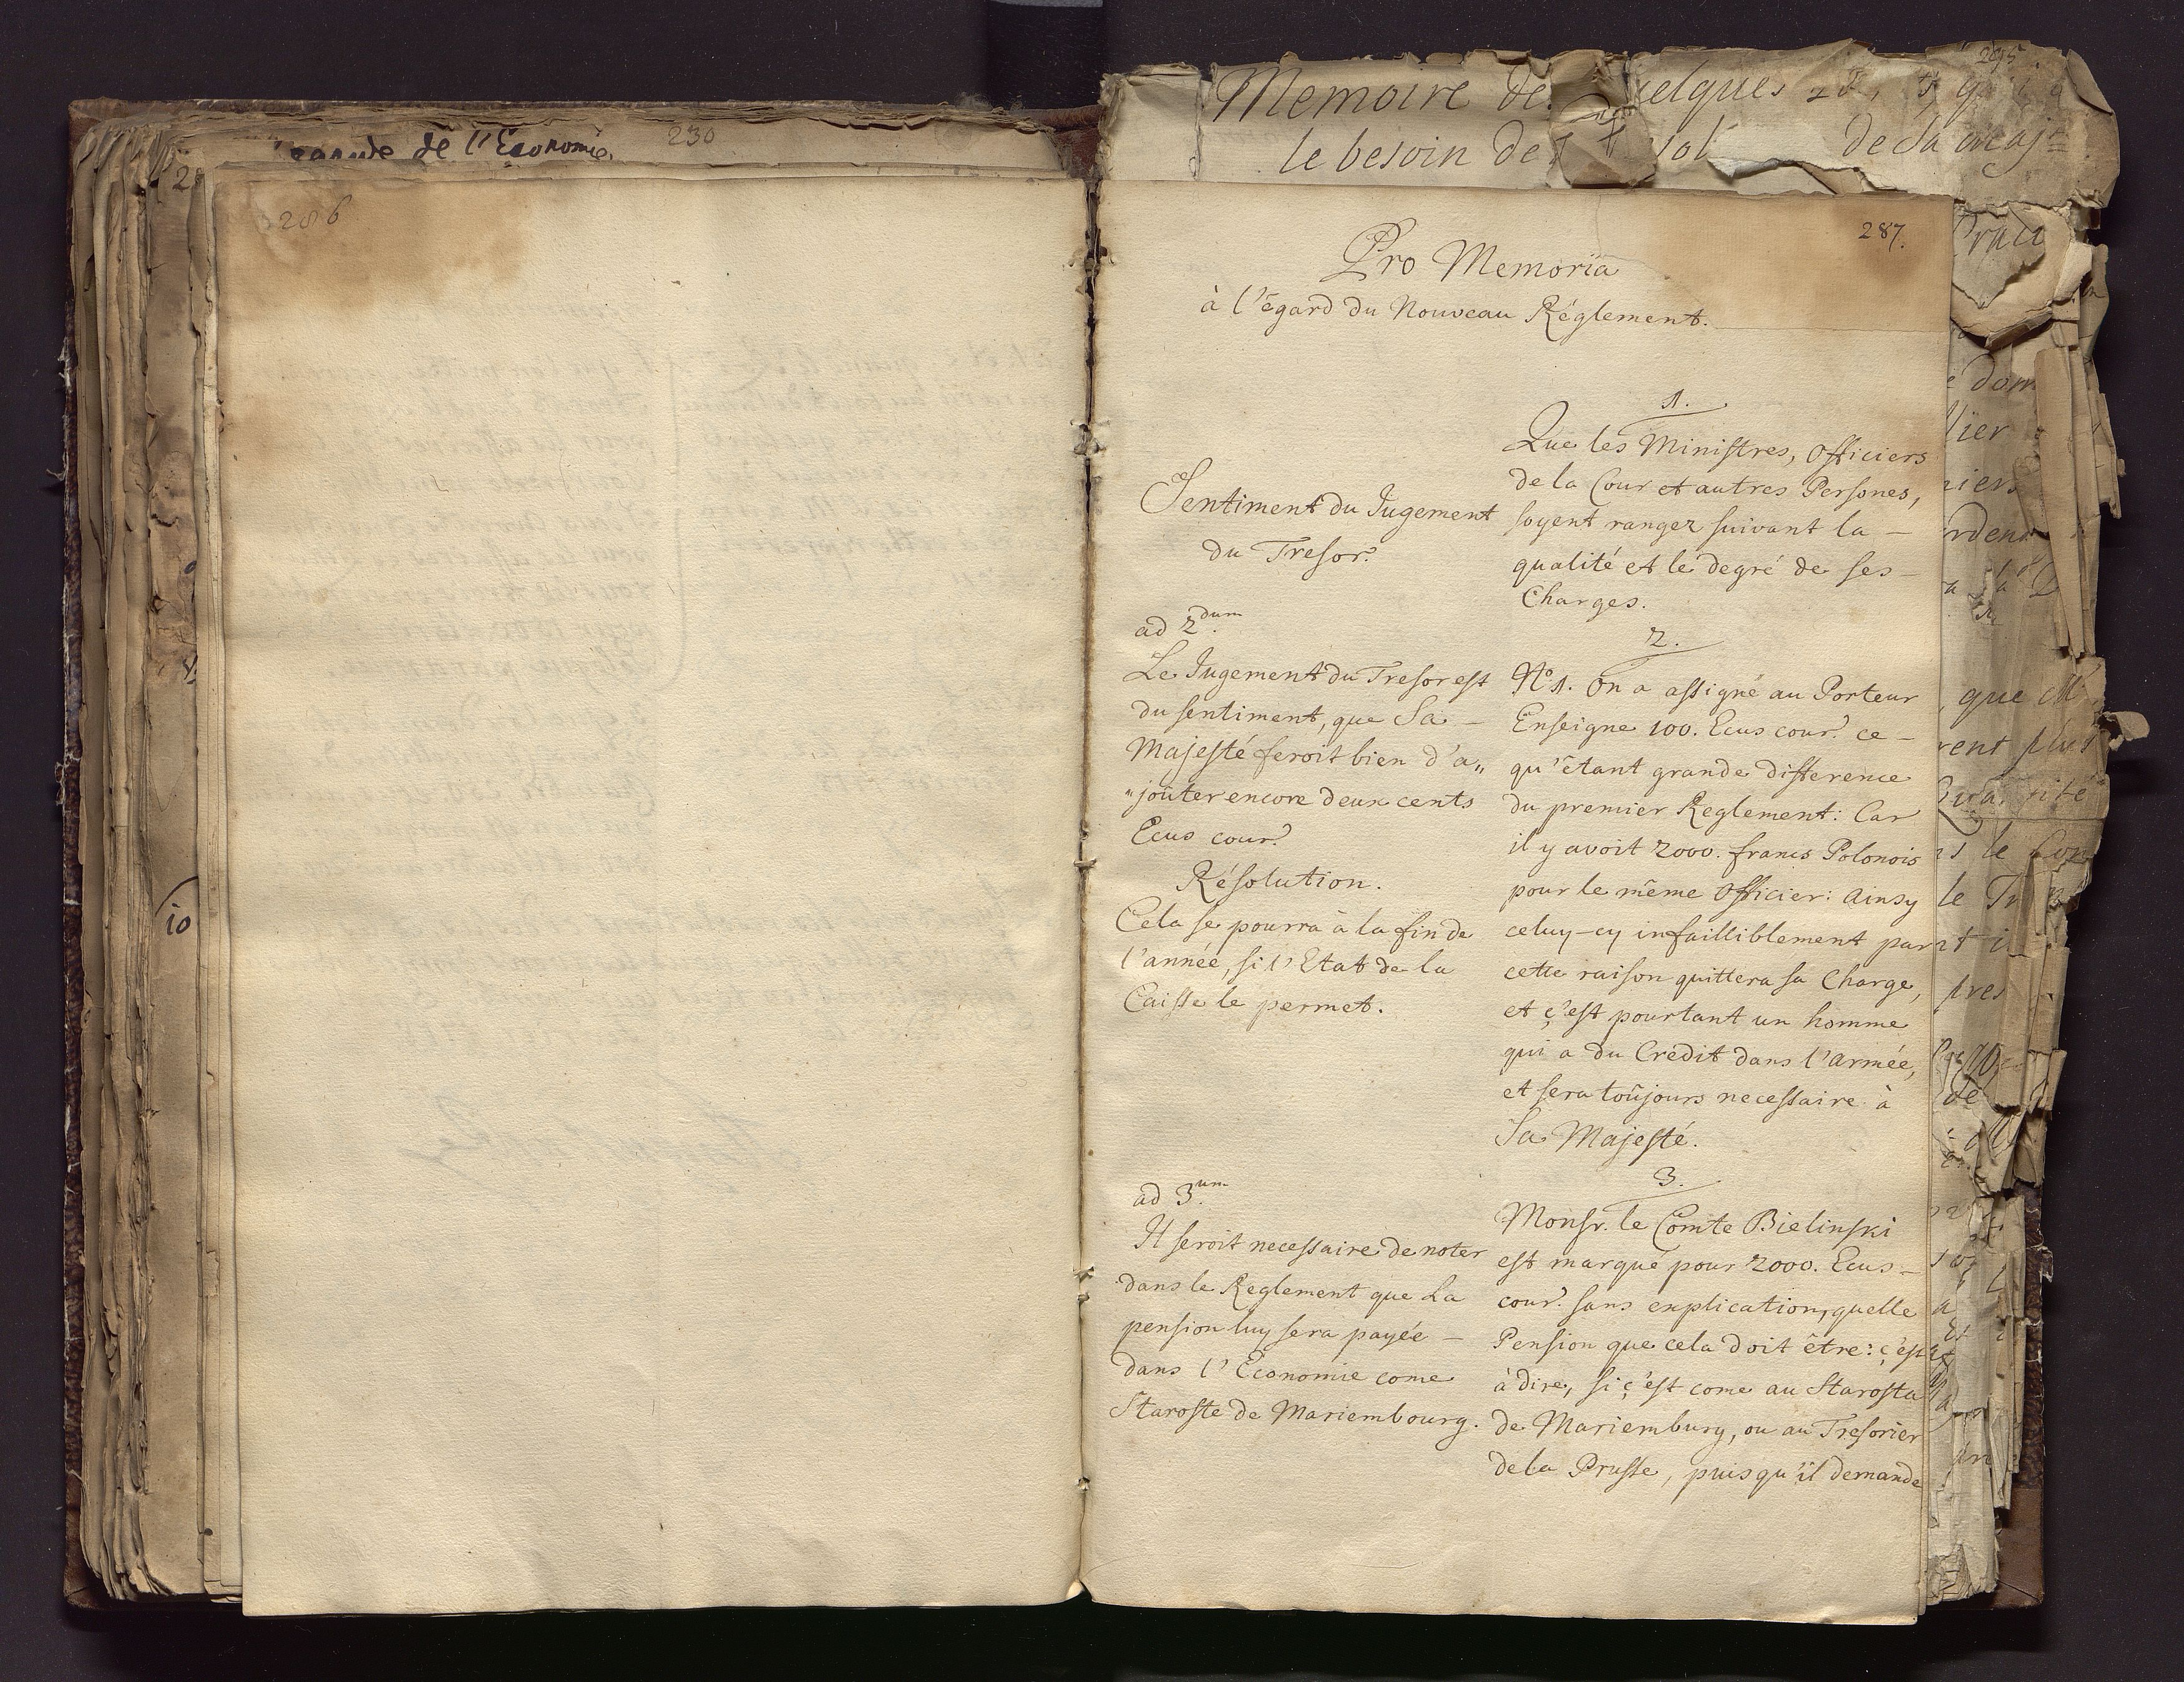 de l'Economie,
230
286
Memoire de
le besoin de
de Sa Maj
295
287.
Pro Memoria
à l'égard du Nouveau Réglement.
Sentiment du Jugement
du Tresor.
ad 2dum
Le Jugement du Tresor est
du sentiment, que Sa –
Majesté feroit bien d'a„
„joûter encore deux cents
Ecus cour.
Résolution.
Cela se pourra à la fin de
l'année, si l'Etat de la
Caisse le permet.
ad 3um
Il seroit necessaire de noter
dans le Reglement que La
pension luy sera payée –
dans l'Economie come
Staroste de Mariembourg.
1.
Que les Ministres, Officiers
de la Cour et autres Persones,
soyent rangez suivant la –
qualité et le degré de ses –
Charges.
2.
No 1. On a assigné au Porteur
Enseigne 100. Ecus cour. ce –
qu'étant grande difference
du premier Reglement: Car
il y avoit 2000. francs Polonois
pour le même Officier: Ainsy
celuy-cy infailliblement par
cette raison quittera sa Charge,
et ç'est pourtant un homme
qui a du Credit dans l'armée,
et sera toûjours necessaire à
Sa Majesté.
3.
Monsr. le Comte Bielinski
est marqué pour 2000. Ecus –
cour. sans explication, quelle
Pension que cela doit être: ç'est
à dire, si ç'est come au Starosta
de Mariemburg, ou au Tresorier
de la Prusse, puisqu'il demande
10